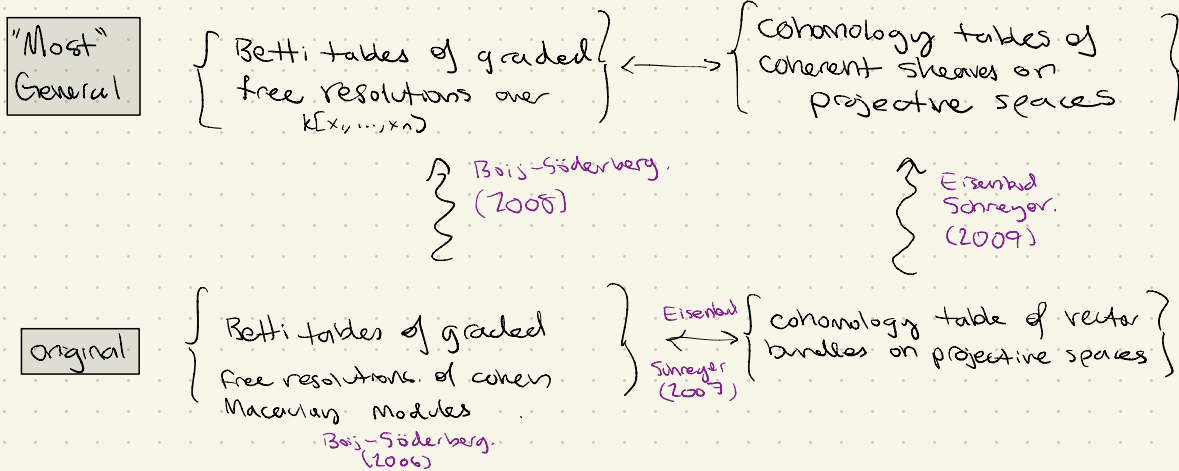 "Most"
General
Betti tables of graded
free resolutions over
k[x₁,...,xₙ]
cohomology tables of
coherent sheaves on
projective spaces
Boij-Söderberg.
(2008)
Eisenbud
Schreyer.
(2009)
original
Betti tables of graded
free resolutions. of cohen
Macaulay Modules
Boij-Söderberg.
(2006)
Eisenbud
Schreyer
(2007)
cohomology table of vector
bundles on projective spaces